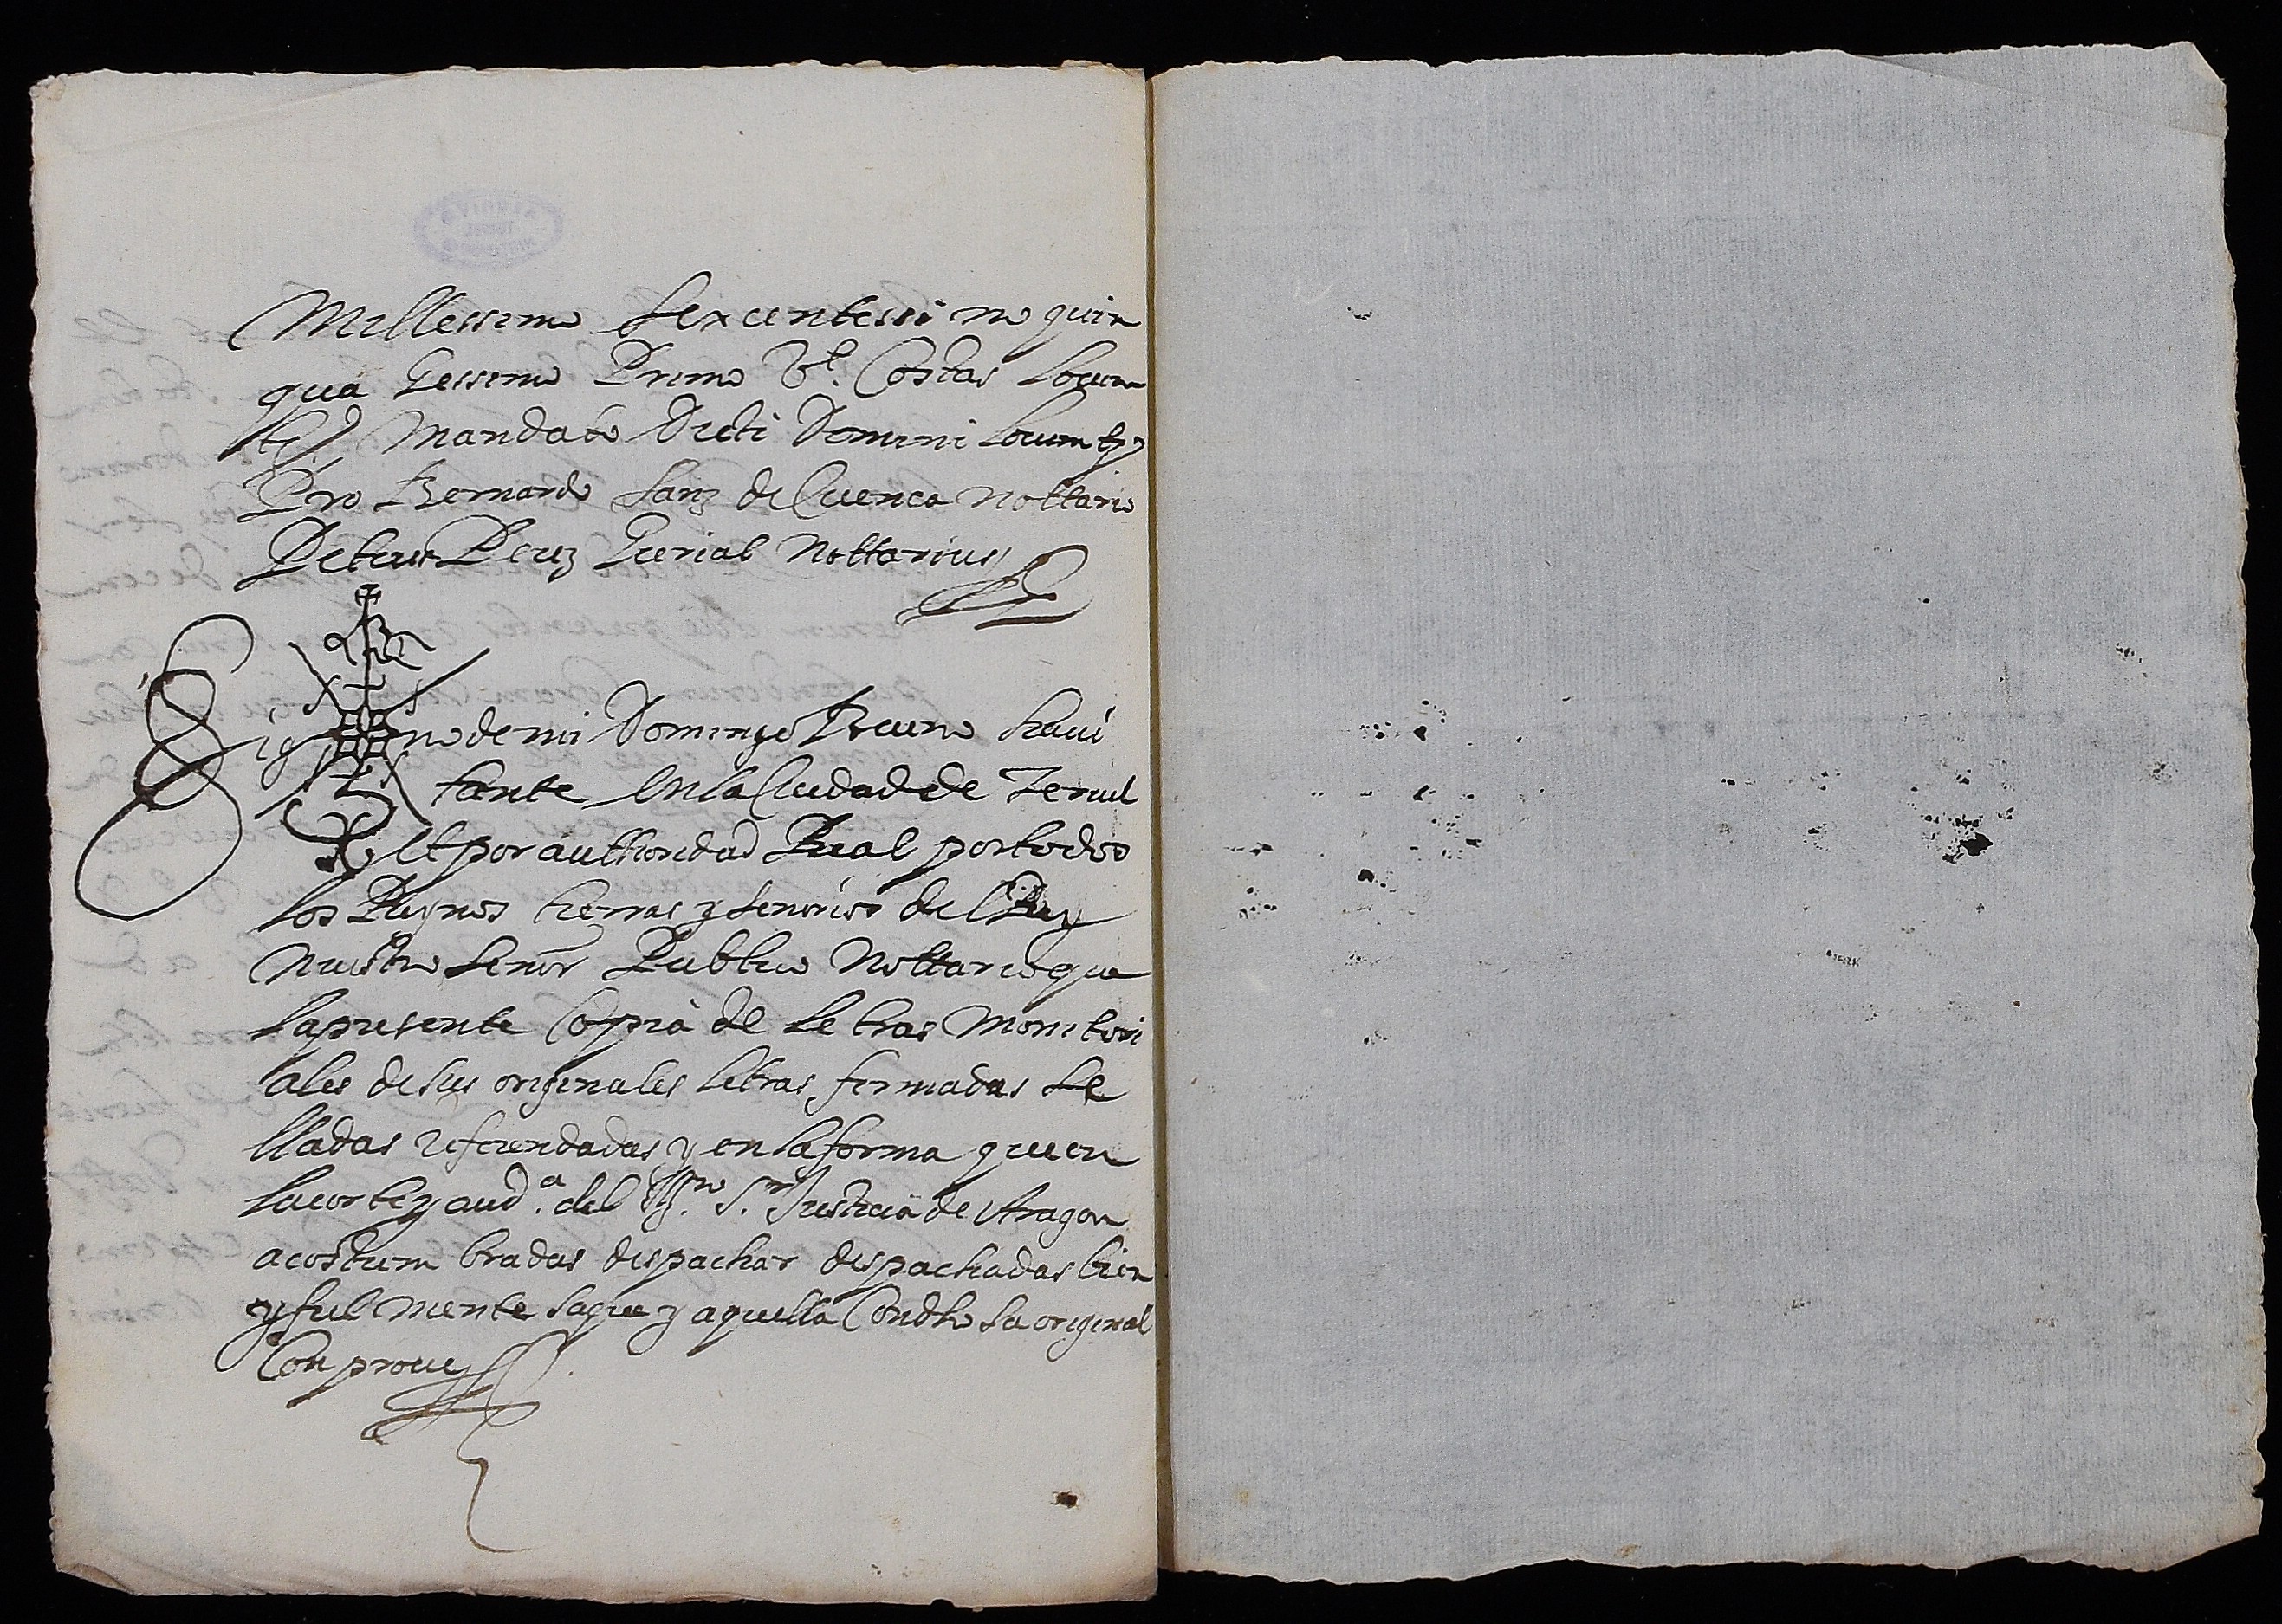 Millessimo Sexcentessimo quin
qua Gessimo Primo Vt. Costas Locum
ts. Mandato Dicti Domini Locumts
Pro Bernardo Sanz de Cuenca Nottario
Petrus Perez Notarius
Signo de mi Domingo Bueno havi
tante en la Ciudad de Teruel
et por authoridad Real por todos
los Reynos tierras y senorios del Rey
nuestro senor Publico Nottario que
la presente Coppia de letras monitori
ales de sus originales letras firmadas se
lladas referendadas y en la forma que en
la corte y auda. del Sr. Justicia de Aragon
acostum bradas dispachar dispachadas bien
y fielmente saque y aquella Con dha su original
Conprove